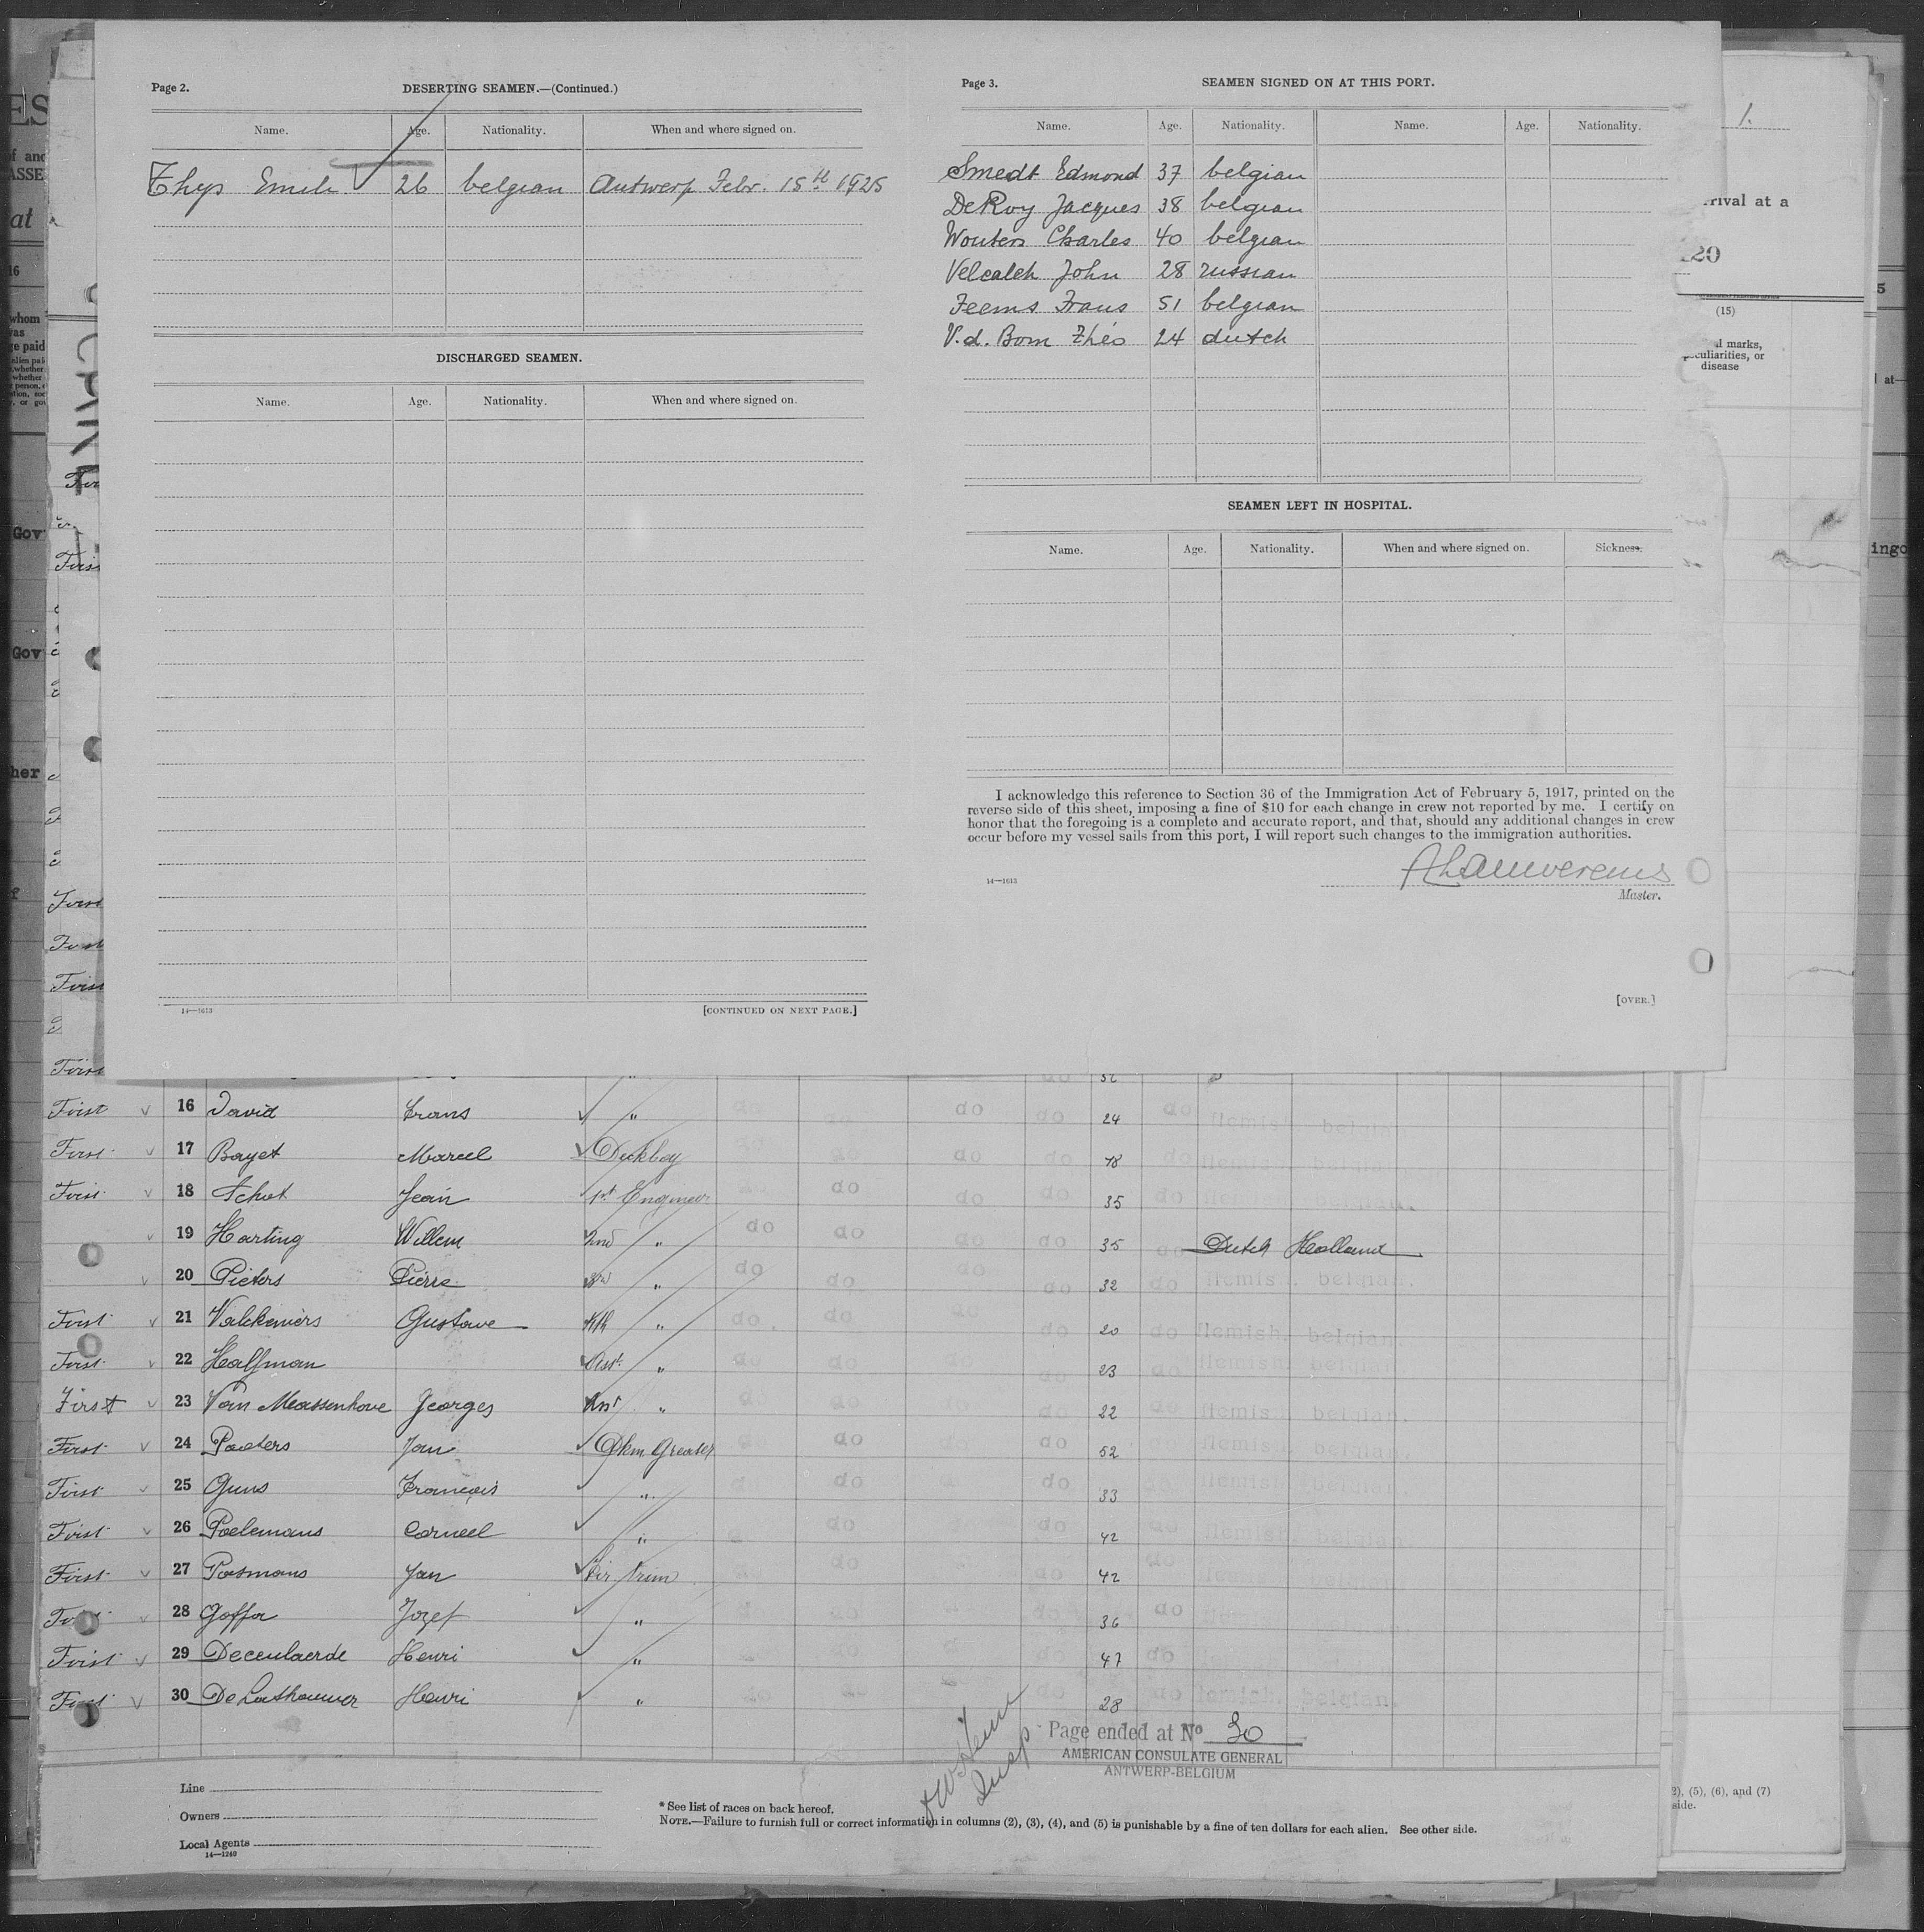 Page 2.
DESERTING SEAMEN.—(Continued.)
Name. Age. Nationality. When and where signed on.
Thys Emile 26 belgian Antwerp Febr. 15th 1925
DISCHARGED SEAMEN.
Name. Age. Nationality. When and where signed on.
14—1613
[CONTINUED ON NEXT PAGE.]
Page 3.
SEAMEN SIGNED ON AT THIS PORT.
Name. Age. Nationality. Name. Age. Nationality.
Smedt Edmond 37 belgian
DeRoy Jacques 38 belgian
Wouters Charles 40 belgian
Velcaleh John 28 russian
Feems Frans 51 belgian
V.d. Bom Théo 24 dutch
SEAMEN LEFT IN HOSPITAL.
Name. Age. Nationality. When and where signed on. Sickness.
I acknowledge this reference to Section 36 of the Immigration Act of February 5, 1917, printed on the
reverse side of this sheet, imposing a fine of $10 for each change in crew not reported by me. I certify on
honor that the foregoing is a complete and accurate report, and that, should any additional changes in crew
occur before my vessel sails from this port, I will report such changes to the immigration authorities.
14—1613
Master.
[OVER.]
First 16 David Frans " do do 24 do
First 17 Bayet Marcel Deckboy do do 18 do
First 18 Schut Jean 1st Engineer do do do 35 do
19 Harting Willem 2nd " do do do do 35 do Dutch Holland
20 Pieters Pierre " do do do do 32 do flemish. belgian.
First 21 Valckeniers Gustave 4th " do. do do 20 do flemish. belgian.
First 22 Halfman Asst. " do do do 23 do flemish. belgian.
First 23 Van Massenhove Georges Asst " do do 22 do flemish. belgian.
First 24 Paeters Jan Dkm Greaser do do 52 flemish. belgian.
First 25 Guns François " do do 33 flemish. belgian.
First 26 Poelemans Corneel " do do 42 do flemish. belgian
First 27 Posmans Jan Fir. trim do do 42 do
28 Goffor Jozef " do 36 do
First 29 Deceulaerde Henri " do 47 do
First 30 De Lathouwer Henri " do 28 do flemish. belgian.
Page ended at No 30
AMERICAN CONSULATE GENERAL
ANTWERP-BELGIUM
Line
Owners
Local Agents
14—1240
* See list of races on back hereof.
NOTE.—Failure to furnish full or correct information in columns (2), (3), (4), and (5) is punishable by a fine of ten dollars for each alien. See other side.
1.
rival at a
20
(15)
marks,
peculiarities, or
disease
2), (5), (6), and (7)
side.